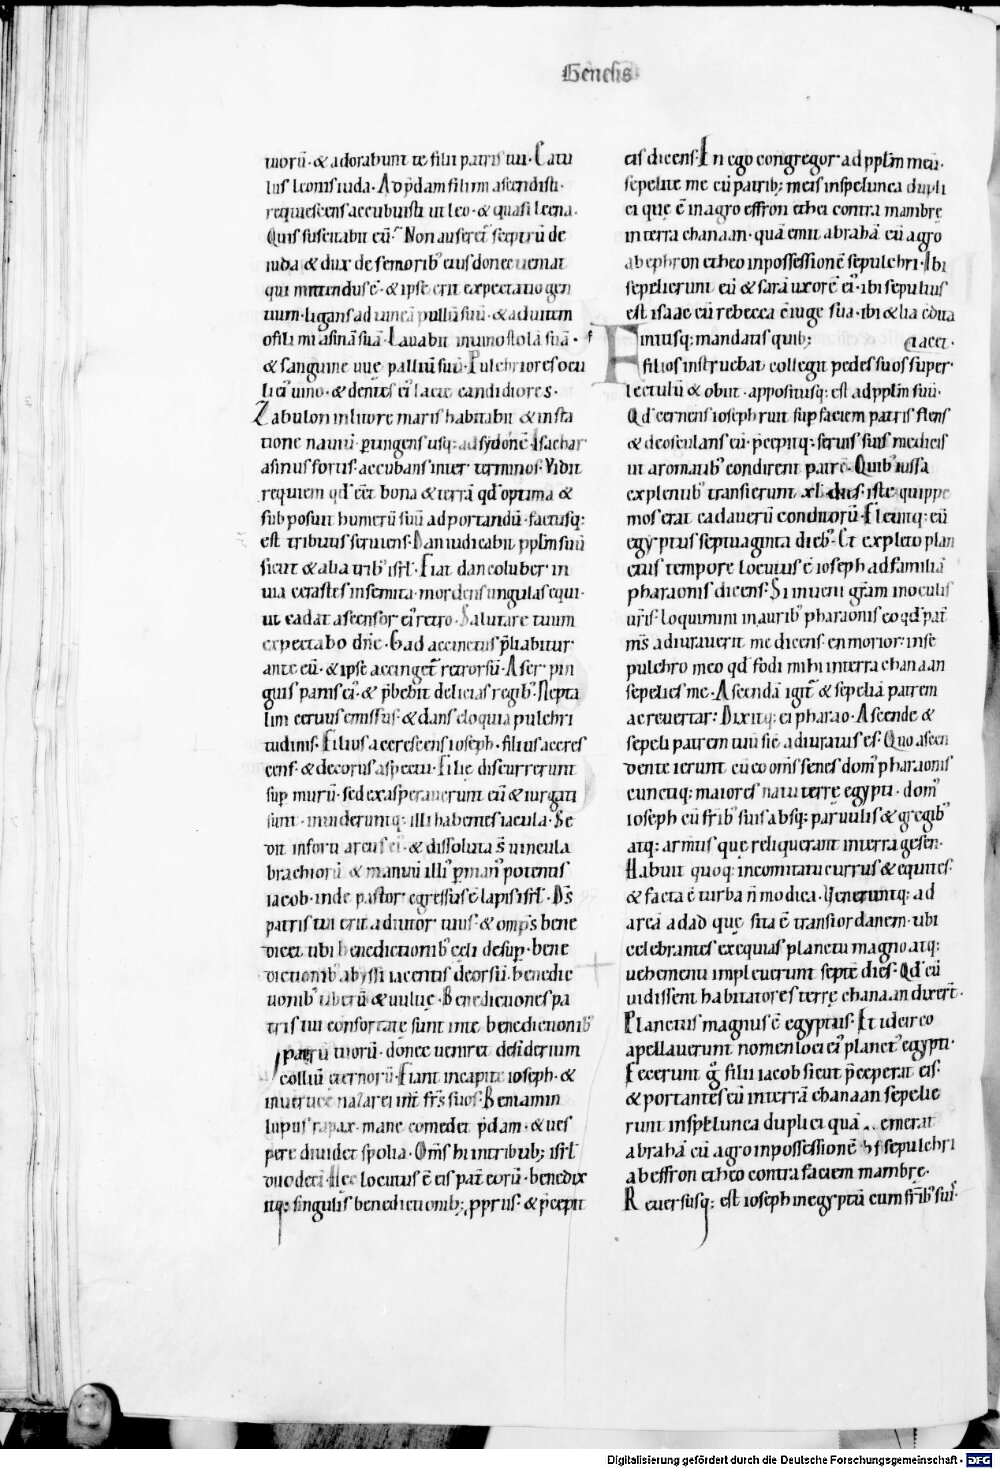 Genesis
tuorū · & adorabunt te filii patris tui · Catu
lus leonis iuda · Ad p̄dam fili mi ascendisti ·
requiescens accubuisti ut leo · & quasi leena ·
Quis suscitabit eū · Non auferet᷑ sceptrū de
iuda & dux de femorib' eius donec ueniat
qui mittendus ē · & ipse erit expectatio gen
tium · ligans ad uineā pullū suū · & ad uitem
o fili mi asinā suā · Lauabit in uino stolā suā ·
& sanguine uuę palliū suū · Pulchriores ocu
li ei' uino · & dentes ei' lacte candidiores ·
Zabulon in litore maris habitabit & in sta
tione nauiū · p̱tingens usq; ad sydonē · Isachar
asinus fortis · accubans inter terminos · Vidit
requiem qd' eēt bona & terrā qd' optima &
subposuit humerū suū ad portandū · factusq;
est tributis seruiens · Dan iudicabit pplm̄ suū
sicut & alia trib' isrl̄ · Fiat dan coluber in
uia cerastes in semita · mordens ungulas equi ·
ut cadat ascensor ei' retro · Salutare tuum
expectabo dn̄e · Gad accinctus p̄liabitur
ante eū · & ipse accinget᷑ retrorsū · Aser pin
guis panis ei' · & p̄bebit delicias regib' · Nepta
lim ceruus emissus · & dans eloquia pulchri
tudinis · Filius accrescens ioseph · filius accres
cens · & decorus aspectu · Filię discurrerunt
sup̱ murū · sed exasperauerunt eū & iurgati
sunt · inuideruntq; illi habentes iacula · Se
dit in forti arcus ei' · & dissoluta s̄ uincula
brachiorū & manuū illi' p̱ man' potentis
iacob · inde pastor egressus ē lapis isrl̄ · Ds̄
patris tui erit adiutor tuus · & omp̄s bene
dicet tibi benedictionib' cęli desup̱ · bene
dictionib' abyssi iacentis deorsū · benedic
tionib' uberū & uuluę · Benedictiones pa
tris tui confortate sunt inte benedictionib'
patrū tuorū · donec ueniret desiderium
colliū eternorū · Fiant in capite ioseph · &
in uertice nazarei int̄ frs̄ suos · Beniamin
lupus rapax · mane comedet p̄dam · & ues
pere diuidet spolia · Om̄s hi in tribub; isrl̄
duodeci · Hęc locutus ē eis pat̄ eorū · benedix
itq; singulis benedictionib; ppriis · & p̄cepit
eis dicens · En ego congregor ad pplm̄ meū ·
sepelite me cū patrib; meis in spelunca dupli
ci quę ē in agro effron ethei contra mambre
in terra chanaan · quā emit abrahā cū agro
ab ephron etheo in possessionē sepulchri · Ibi
sepelierunt eū & sarā uxorē ei' · ibi sepultus
est isaac cū rebecca c̄iuge sua · ibi & lia c̄dita
iacet ·
Finitisq; mandatis quib;
filios instruebat collegit pedes suos super
lectulū & obiit · appositusq; est ad pplm̄ suū ·
Qd' cernens ioseph ruit sup̱ faciem patris flens
& deosculans eū · p̄cepitq; seruis suis medicis
ut aromatib' condirent patrē · Quib' iussa
explentib' transierunt xl· dies · iste quippe
mos erat cadauerū conditorū · Fleuitq; eū
egyptus septuaginta dieb' · Et expleto plan
ctus tempore locutus ē ioseph ad familiā
pharaonis dicens · Si inueni grām in oculis
ur̄is · loquimini in aurib' pharaonis eo qd' pat̄
m̄s adiurauerit me dicens · en morior · inse
pulchro meo qd' fodi mihi interra chanaan
sepelies me · Ascendā igit᷑ & sepeliā patrem
ac reuertar · Dixitq; ei pharao · Ascende &
sepeli patrem tuū sic adiuratus es · Quo ascen
dente ierunt cū eo om̄s senes dom' pharaonis
cunctiq; maiores natu terrę egypti · dom'
ioseph cū frib' suis absq; paruulis & gregib'
atq; armtis quę reliquerant in terra gesen ·
Habuit quoq; in comitatu currus & equites ·
& facta ē turba n̄ modica · Veneruntq; ad
areā adad quę sita ē trans iordanem · ubi
celebrantes exequias planctu magno atq;
uehementi impleuerunt septē dies · Qd' cū
uidissent habitatores terrę chanaan dixert̄ ·
Planctus magnus ē egyptiis · Et idcirco
apellauerunt nomen loci ei' planct' egypti ·
Fecerunt g̊ filii iacob sicut p̄ceperat eis ·
& portantes eū in terrā chanaan sepelie
runt in spelunca duplici quā emerat
abrahā cū agro in possessionē sepulchri
ab effron etheo contra faciem mambre ·
Reuersusq; est ioseph in egyptū cum frib' suis ·
Digitalisierung gefördert durch die Deutsche Forschungsgemeinschaft - DFG